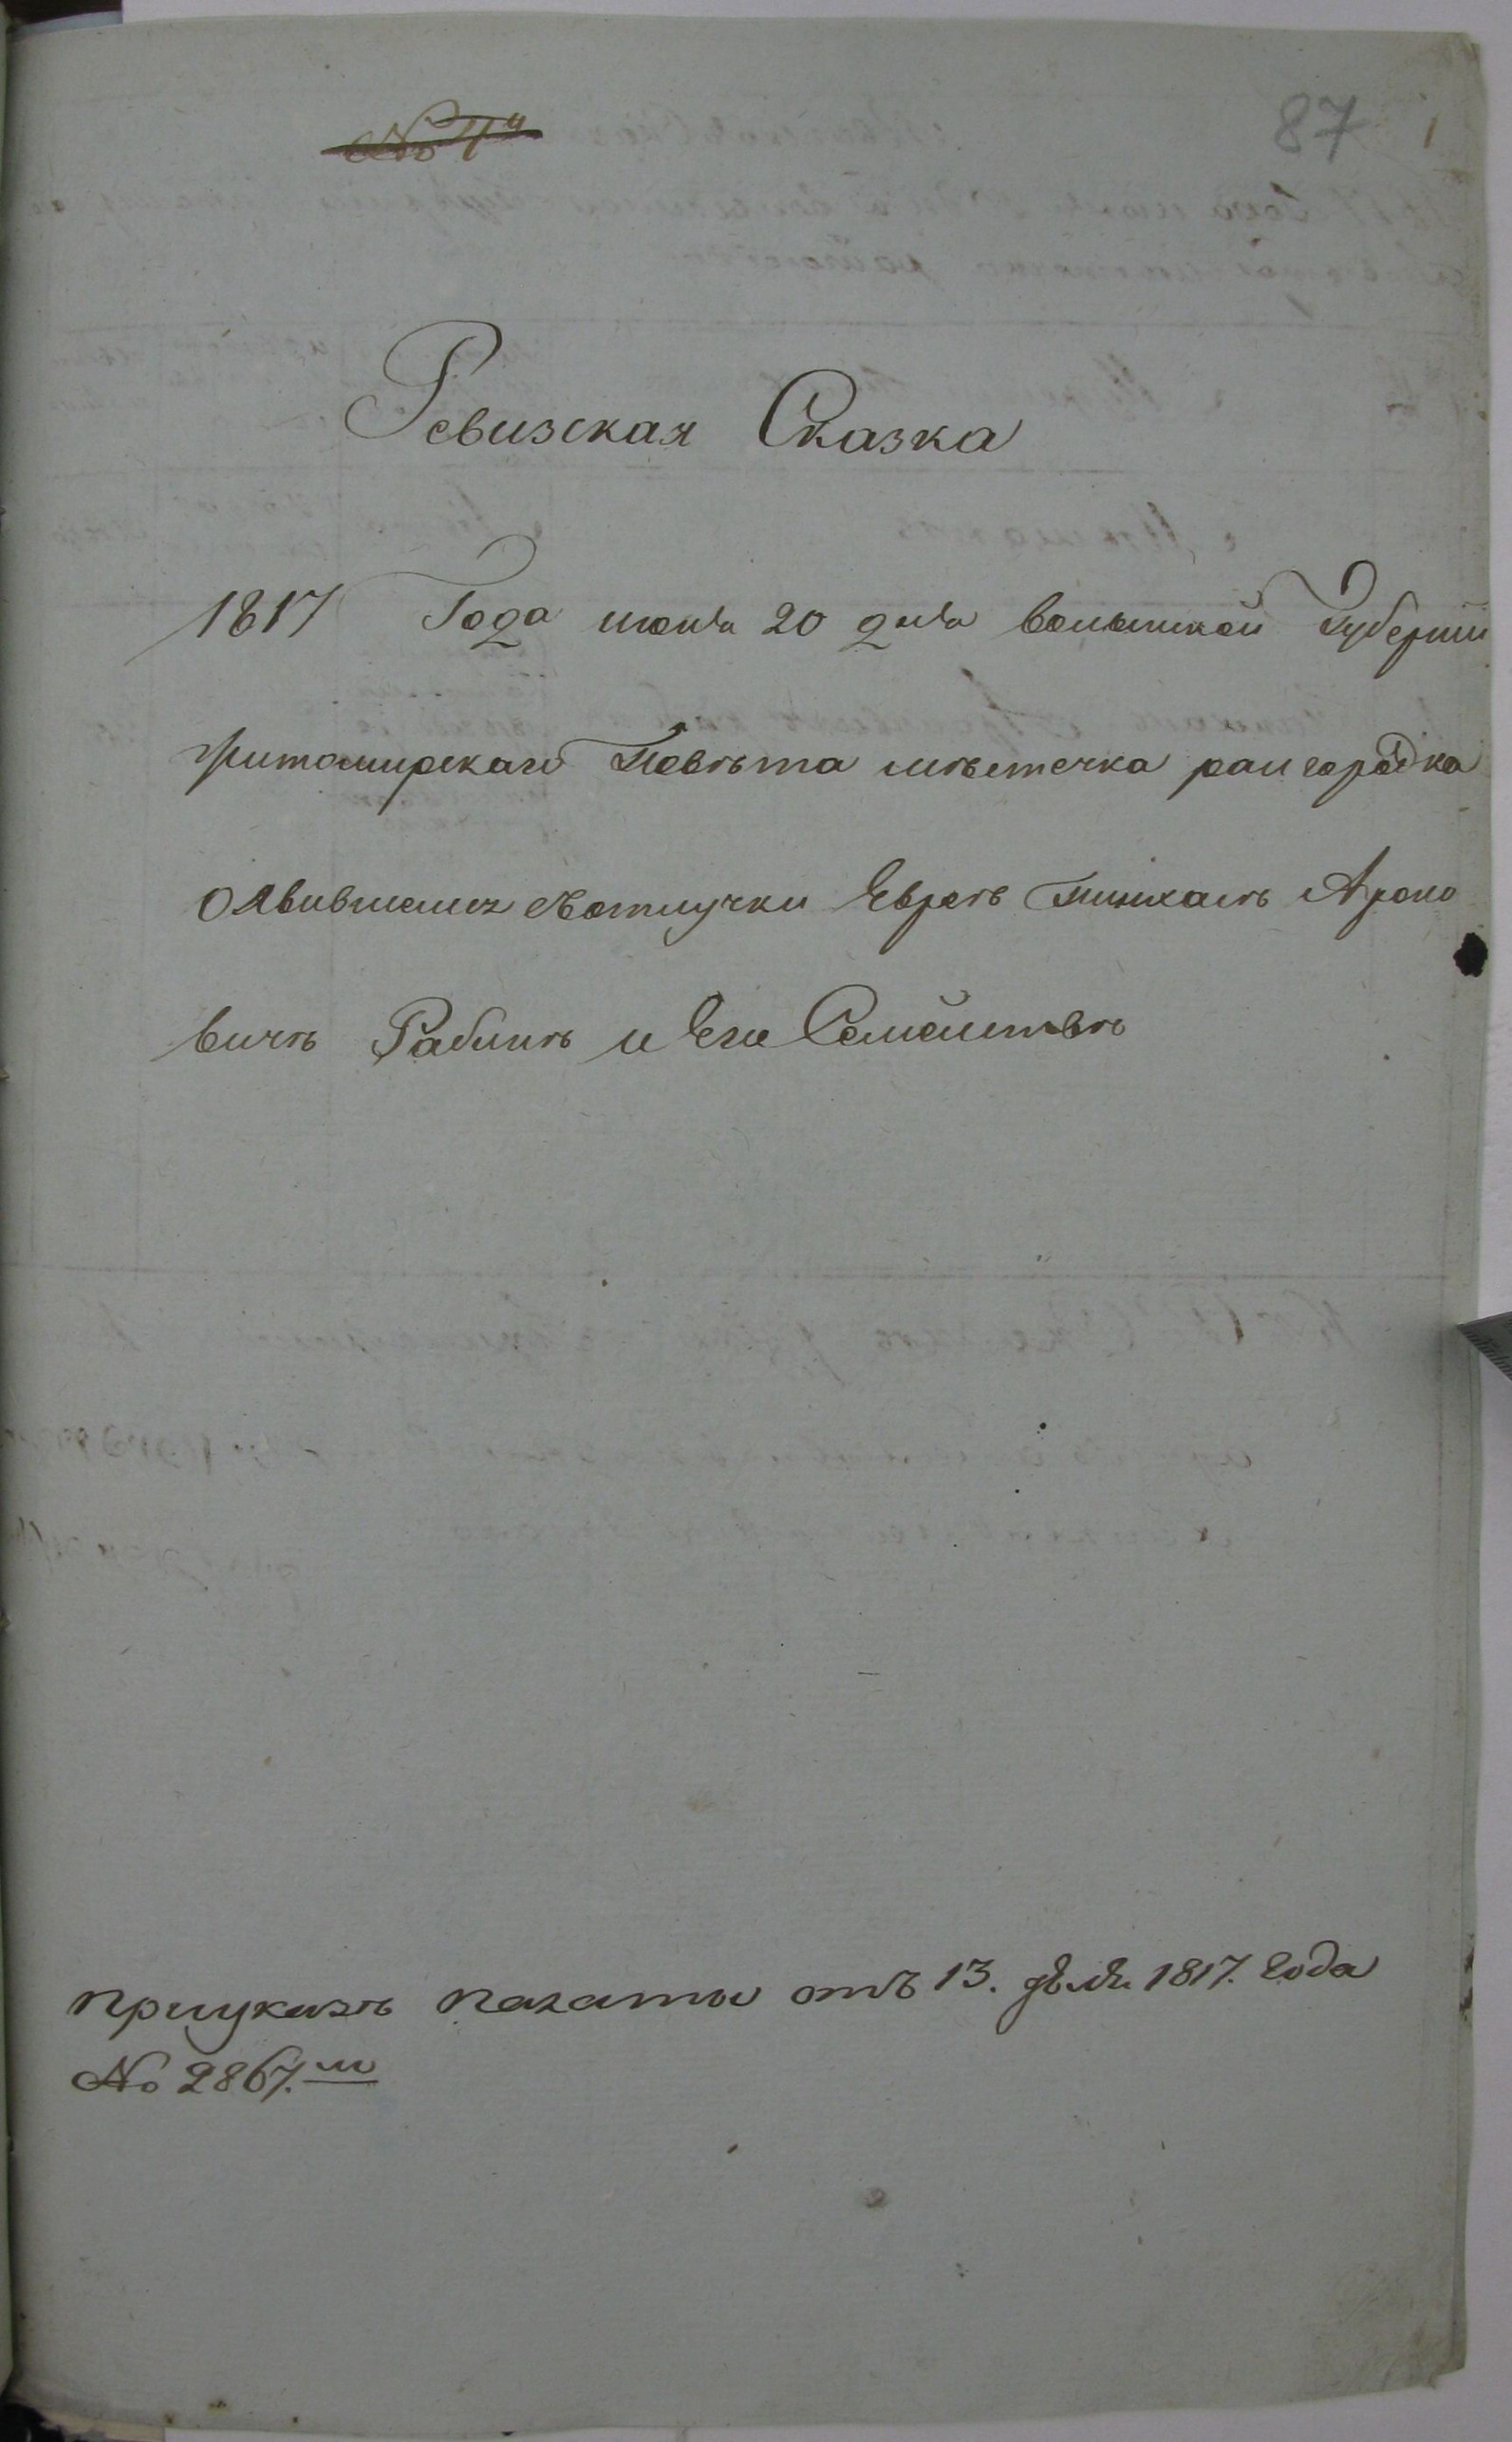 № 4й
87
Ревизская Сказка
1817 Года июня 20 дня волынской Губернии
житомирскаго Повѣта мѣстечка райгородка
оявившемся сотлучки Евреѣ Пинхасѣ Ароно
вичѣ Рабинѣ и Его Семействѣ
приуказѣ палаты отъ 13. 1817. года
№ 2867.м